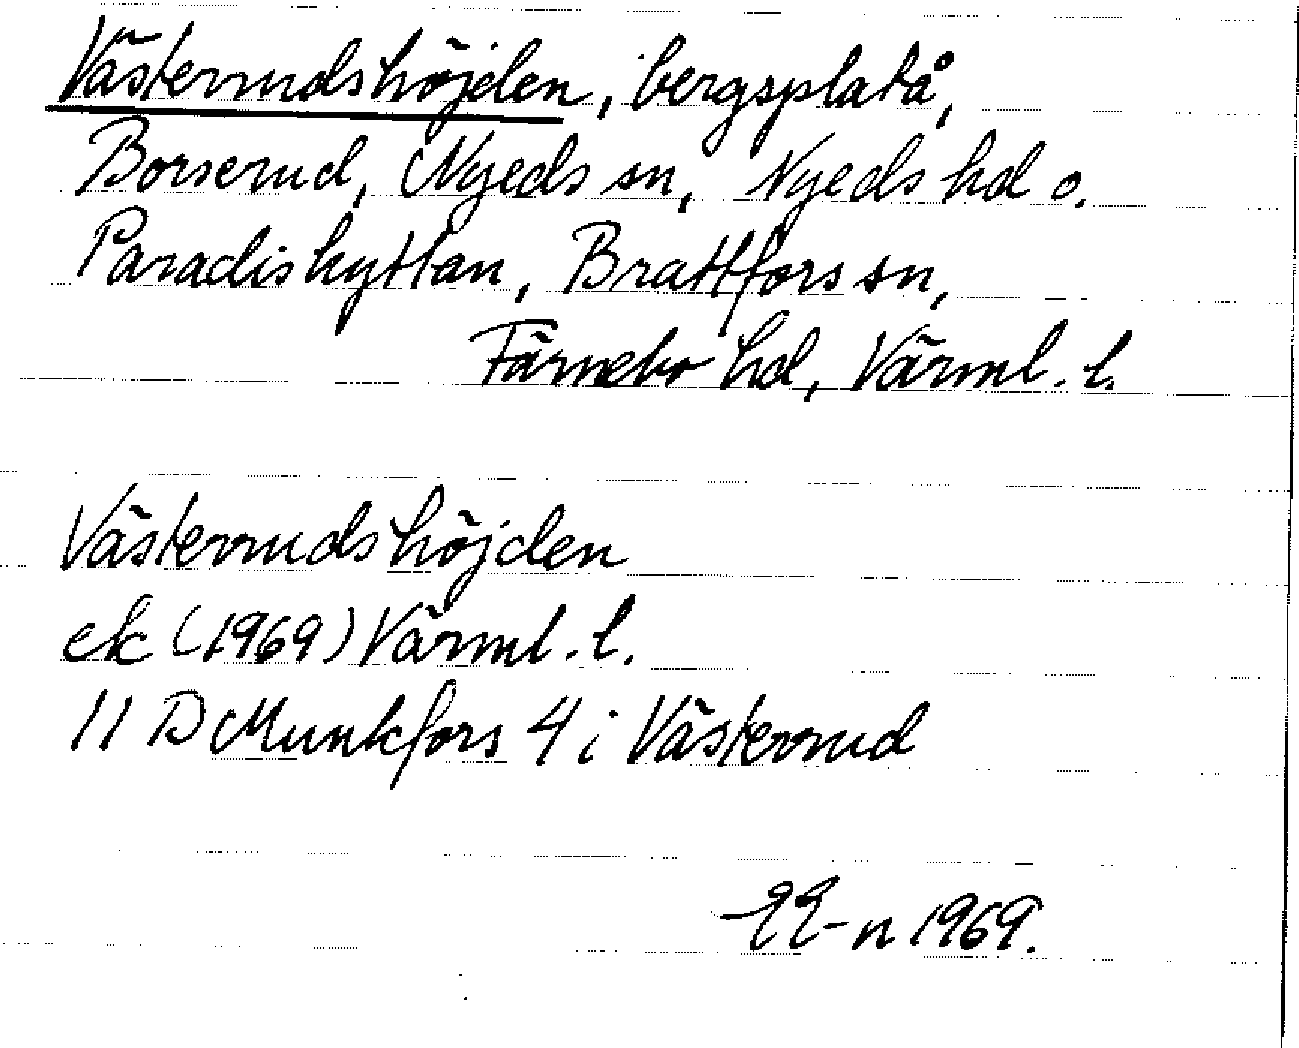 Västerrudshöjden, bergsplatå,
Borserud, Nyeds sn, Nyeds hd o.
Paradishyttan, Brattfors sn,
Färnebo hd, Värml. l.
Västerrudshöjden
ek (1969) Värml. l.
11 D Munkfors 4 i Västerrud
EE-n 1969.